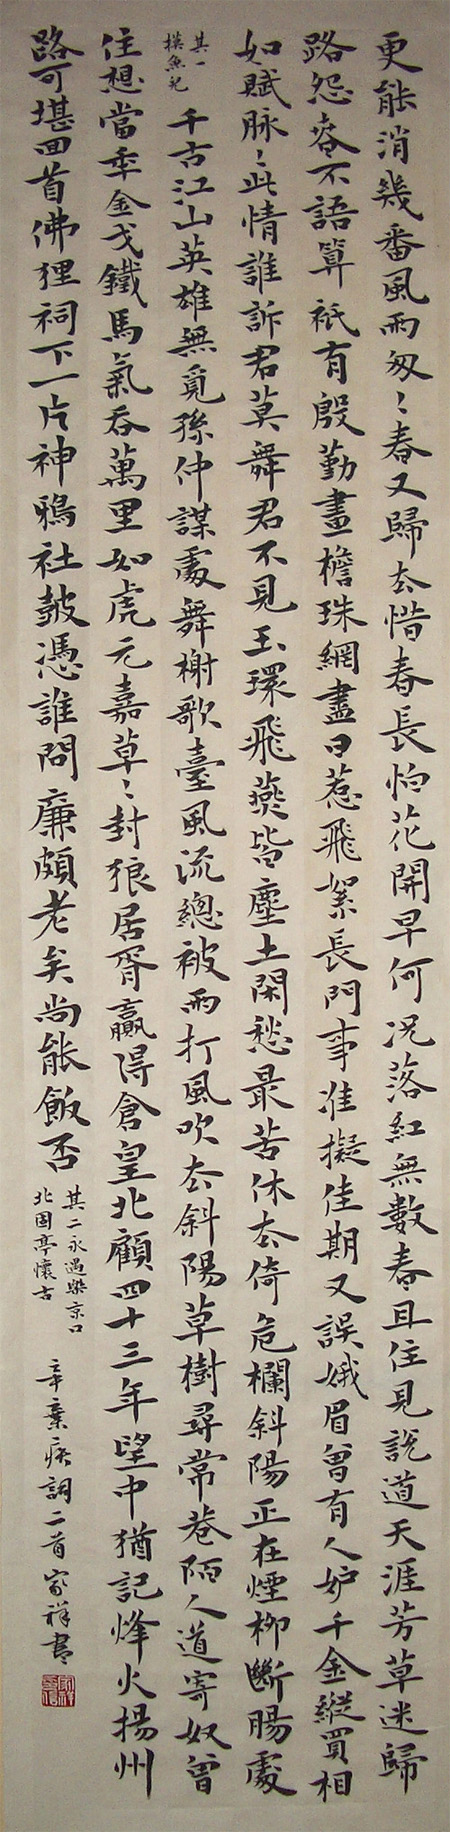 更能消幾番風雨匆〻春又歸去惜春長怕花開早何況落紅無數春且住見說道天涯芳草迷歸
路怨春不語算祇有殷勤畫檐珠網盡日惹飛絮長門事准擬佳期又誤娥眉曾有人妒千金縱買相
如賦脉〻此情誰訴君莫舞君不見玉環飛燕皆塵土閑愁最苦休去倚危欄斜陽正在煙柳斷腸處
其一
摸魚兒
千古江山英雄無覓孫仲謀處舞榭歌臺風流總被雨打風吹去斜陽草樹尋常巷陌人道寄奴曾
住想當年金戈鐵馬氣吞萬里如虎元嘉草〻封狼居胥贏得倉皇北顧四十三年望中猶記烽火揚州
路可堪回首佛狸祠下一片神鴉社鼓憑誰問廉頗老矣尚能飯否
其二永遇樂京口
北固亭懷古
辛棄疾詞二首家祥書